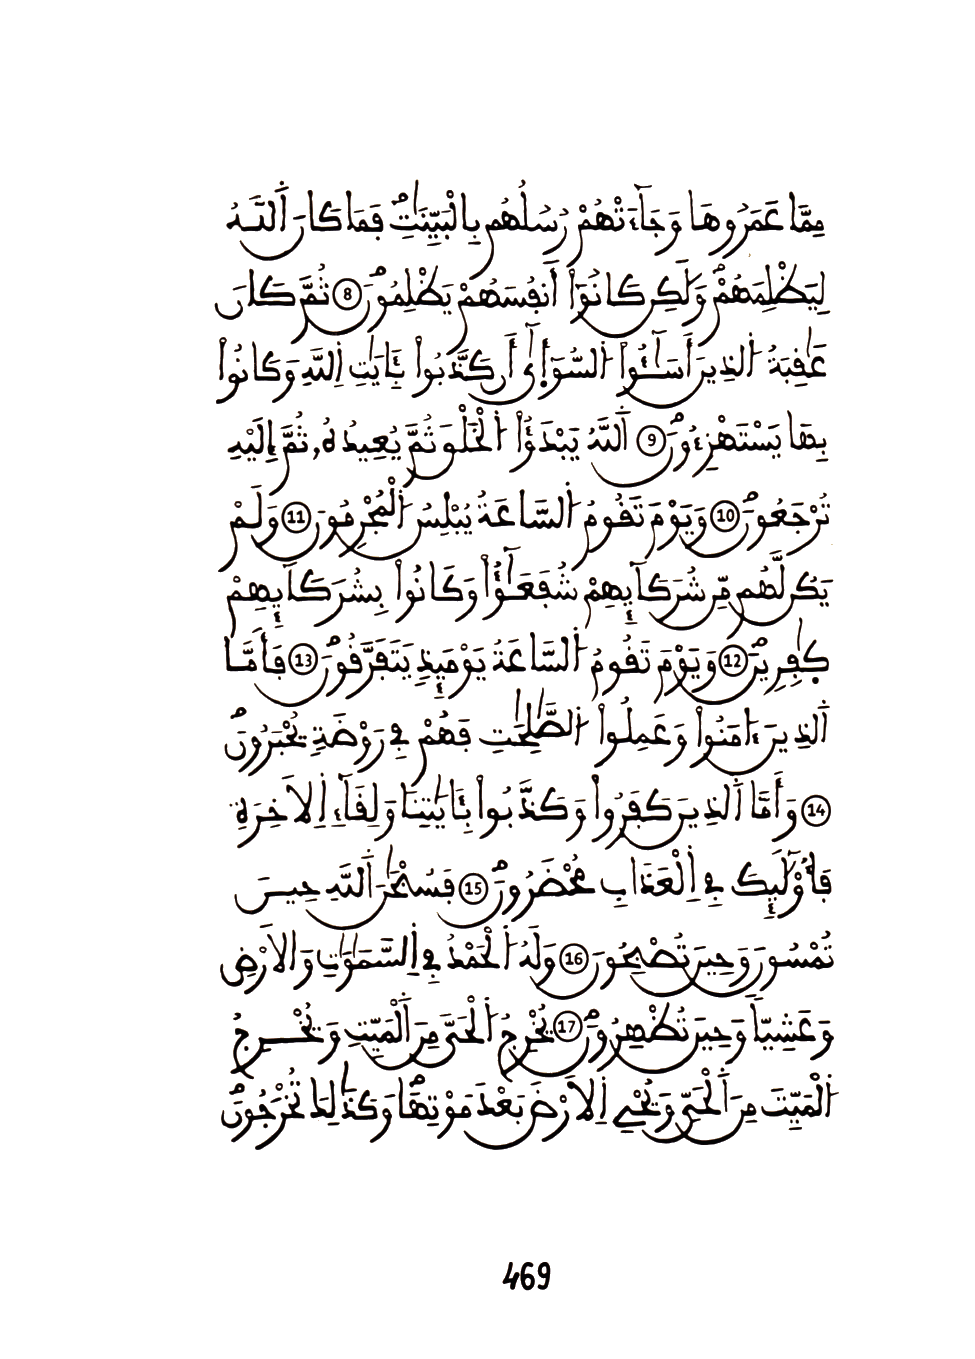 مِمَّا عَمَرُوهَا وَجَآءَتْهُمْ رُسُلُهُم بِالْبَيِّنَٰتِۖ فَمَا كَانَ اَ۬للَّهُ
لِيَظْلِمَهُمْۖ وَلَٰكِن كَانُوٓاْ أَنفُسَهُمْ يَظْلِمُونَۖ 8 ثُمَّ كَانَ
عَٰقِبَةُ اُ۬لذِينَ أَسَٰٓـُٔواْ اُ۬لسُّوٓأ۪ىٰٓ أَن كَذَّبُواْ بِـَٔايَٰتِ اِ۬للَّهِ وَكَانُواْ
بِهَا يَسْتَهْزِءُونَۖ 9 اَ۬للَّهُ يَبْدَؤُاْ اُ۬لْخَلْقَ ثُمَّ يُعِيدُهُۥ ثُمَّ إِلَيْهِ
تُرْجَعُونَۖ 10 وَيَوْمَ تَقُومُ اُ۬لسَّاعَةُ يُبْلِسُ اُ۬لْمُجْرِمُونَ 11 وَلَمْ
يَكُن لَّهُم مِّن شُرَكَآئِهِمْ شُفَعَٰٓؤُاْ وَكَانُواْ بِشُرَكَآئِهِمْ
كٰ۪فِرِينَۖ 12 وَيَوْمَ تَقُومُ اُ۬لسَّاعَةُ يَوْمَئِذٖ يَتَفَرَّقُونَۖ 13 فَأَمَّا
اَ۬لذِينَ ءَامَنُواْ وَعَمِلُواْ اُ۬لصَّٰلِحَٰتِ فَهُمْ فِے رَوْضَةٖ يُحْبَرُونَۖ
14 وَأَمَّا اَ۬لذِينَ كَفَرُواْ وَكَذَّبُواْ بِـَٔايَٰتِنَا وَلِقَآءِ اِ۬لَاخِرَةِ
فَأُوْلَٰٓئِكَ فِے اِ۬لْعَذَابِ مُحْضَرُونَۖ 15 فَسُبْحَٰنَ اَ۬للَّهِ حِينَ
تُمْسُونَ وَحِينَ تُصْبِحُونَ 16 وَلَهُ اُ۬لْحَمْدُ فِے اِ۬لسَّمَٰوَٰتِ وَالَارْضِ
وَعَشِيّاٗ وَحِينَ تُظْهِرُونَۖ 17 يُخْرِجُ اُ۬لْحَيَّ مِنَ اَ۬لْمَيِّتِ وَيُخْرِجُ
اُ۬لْمَيِّتَ مِنَ اَ۬لْحَيِّ وَيُحْيِ اِ۬لَارْضَ بَعْدَ مَوْتِهَاۖ وَكَذَٰلِكَ تُخْرَجُونَۖ
469